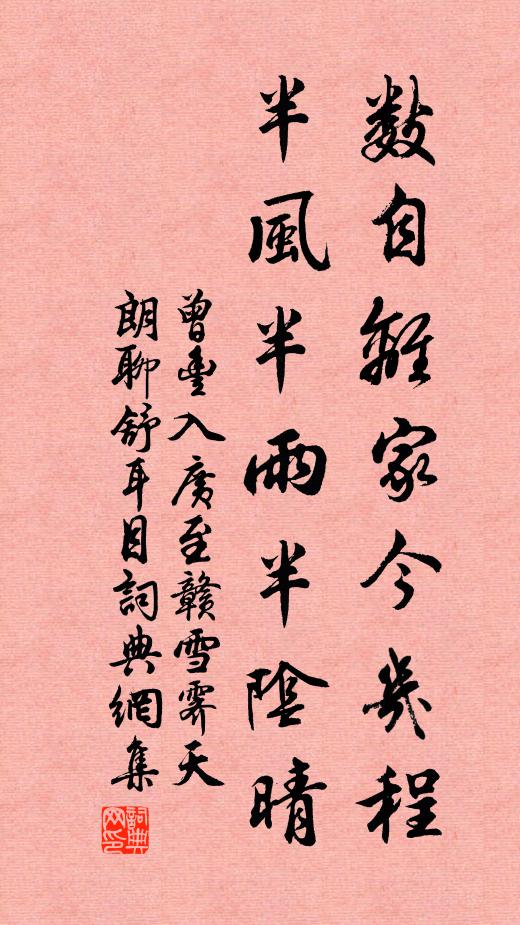 數自離家今幾程
半風半雨半陰晴
曾豐入廣至贛雪霽天
朗聊舒耳目詞典網集
詞典网印